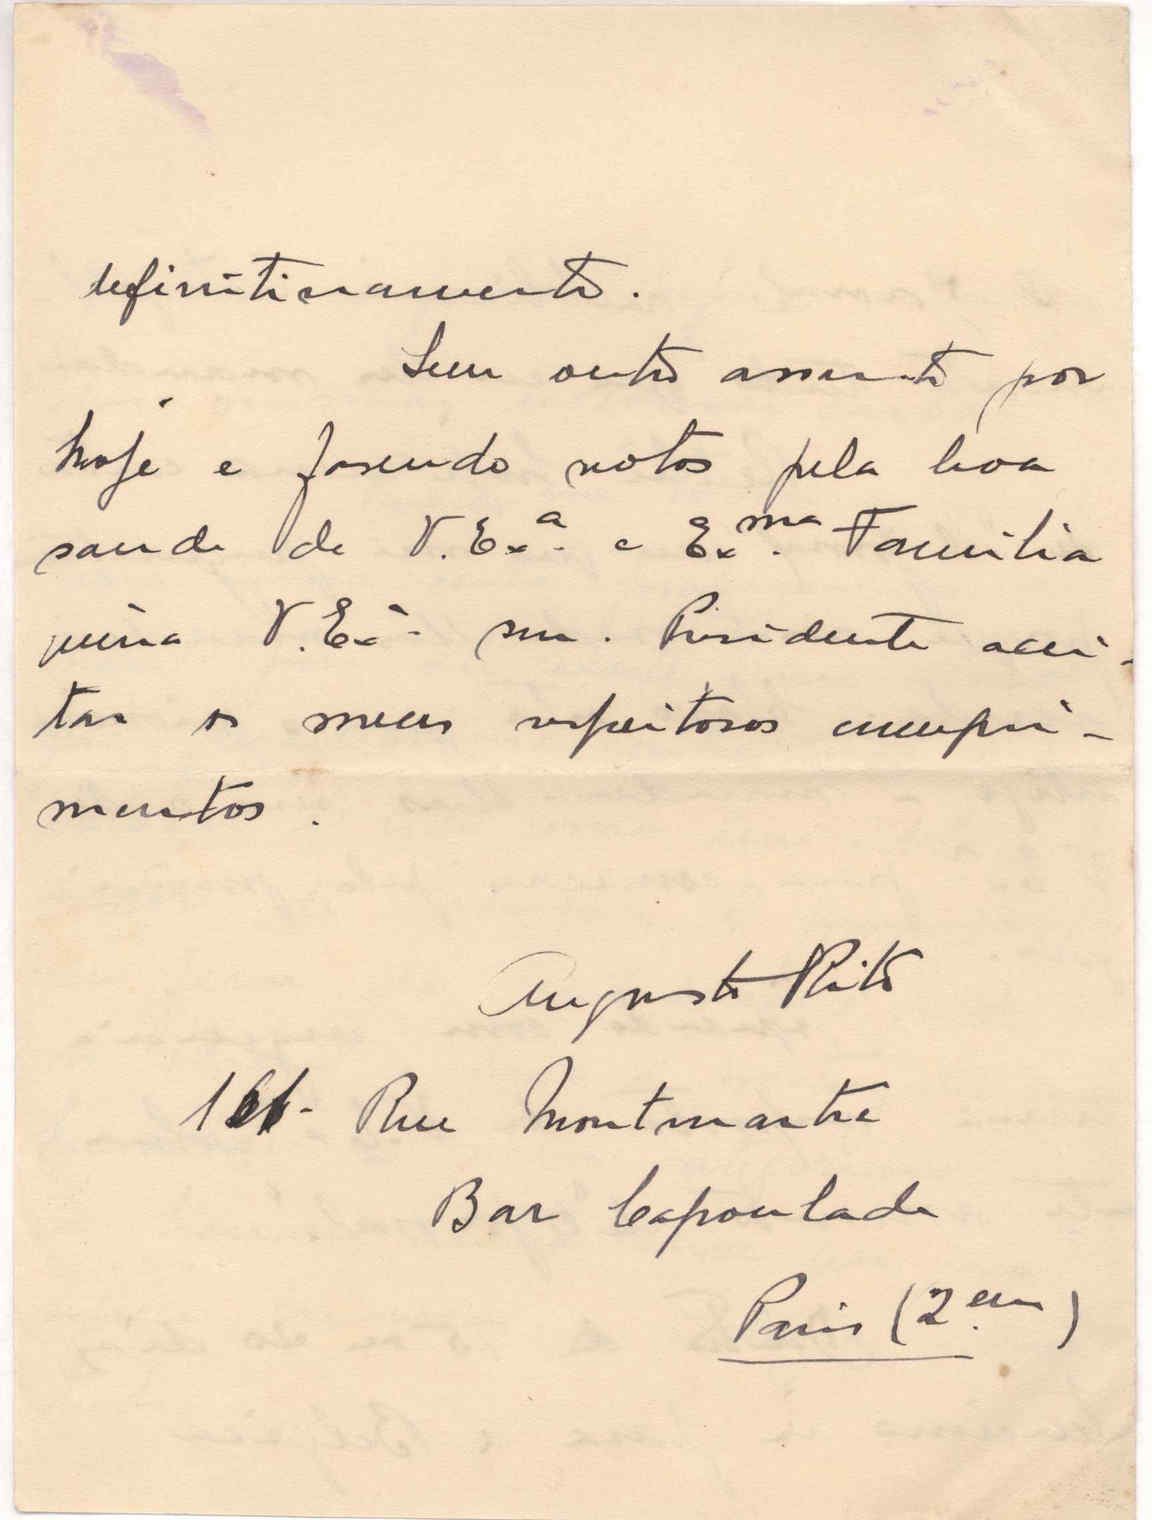 definitivamente.
Sem outro assunto por
hoje e fasendo votos pela boa
saude de V. Ex.ª e Ex.ma Familia
queira V. Ex.ª snr. Presidente acei-
tar os meus respeitosos cumpri-
mentos.
Augusto Rito
Rue Montmartre
Bar Capoulade
Paris (2.em)